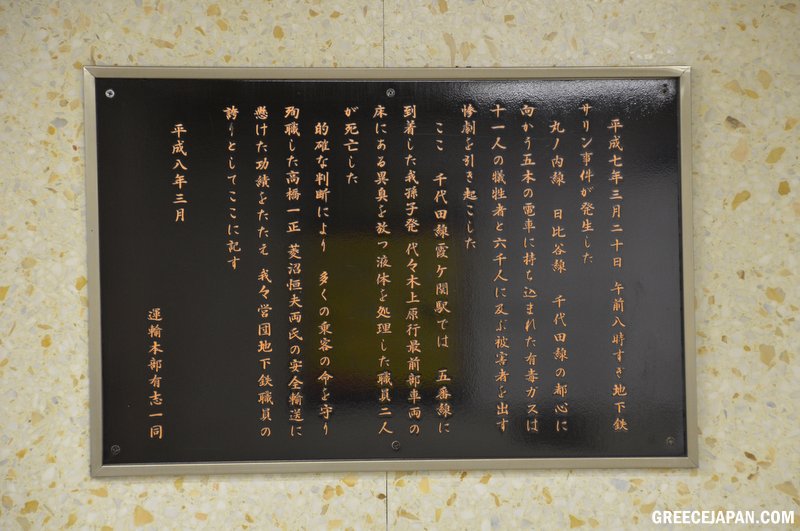 平成七年三月二十日 午前八時すぎ地下鉄
サリン事件が発生した
丸ノ内線 日比谷線 千代田線の都心に
向かう五本の電車に持ち込まれた有毒ガスは
十一人の犠牲者と六千人に及ぶ被害者を出す
惨劇を引き起こした
ここ 千代田線霞ケ関駅では 五番線に
到着した我孫子発 代々木上原行最前部車両の
床にある異臭を放つ液体を処理した職員二人
が死亡した
的確な判断により 多くの乗客の命を守り
殉職した高橋一正 菱沼恒夫両氏の安全輸送に
懸けた功績をたたえ 我々営団地下鉄職員の
誇りとしてここに記す
平成八年三月
運輸本部有志一同
GREECEJAPAN.COM